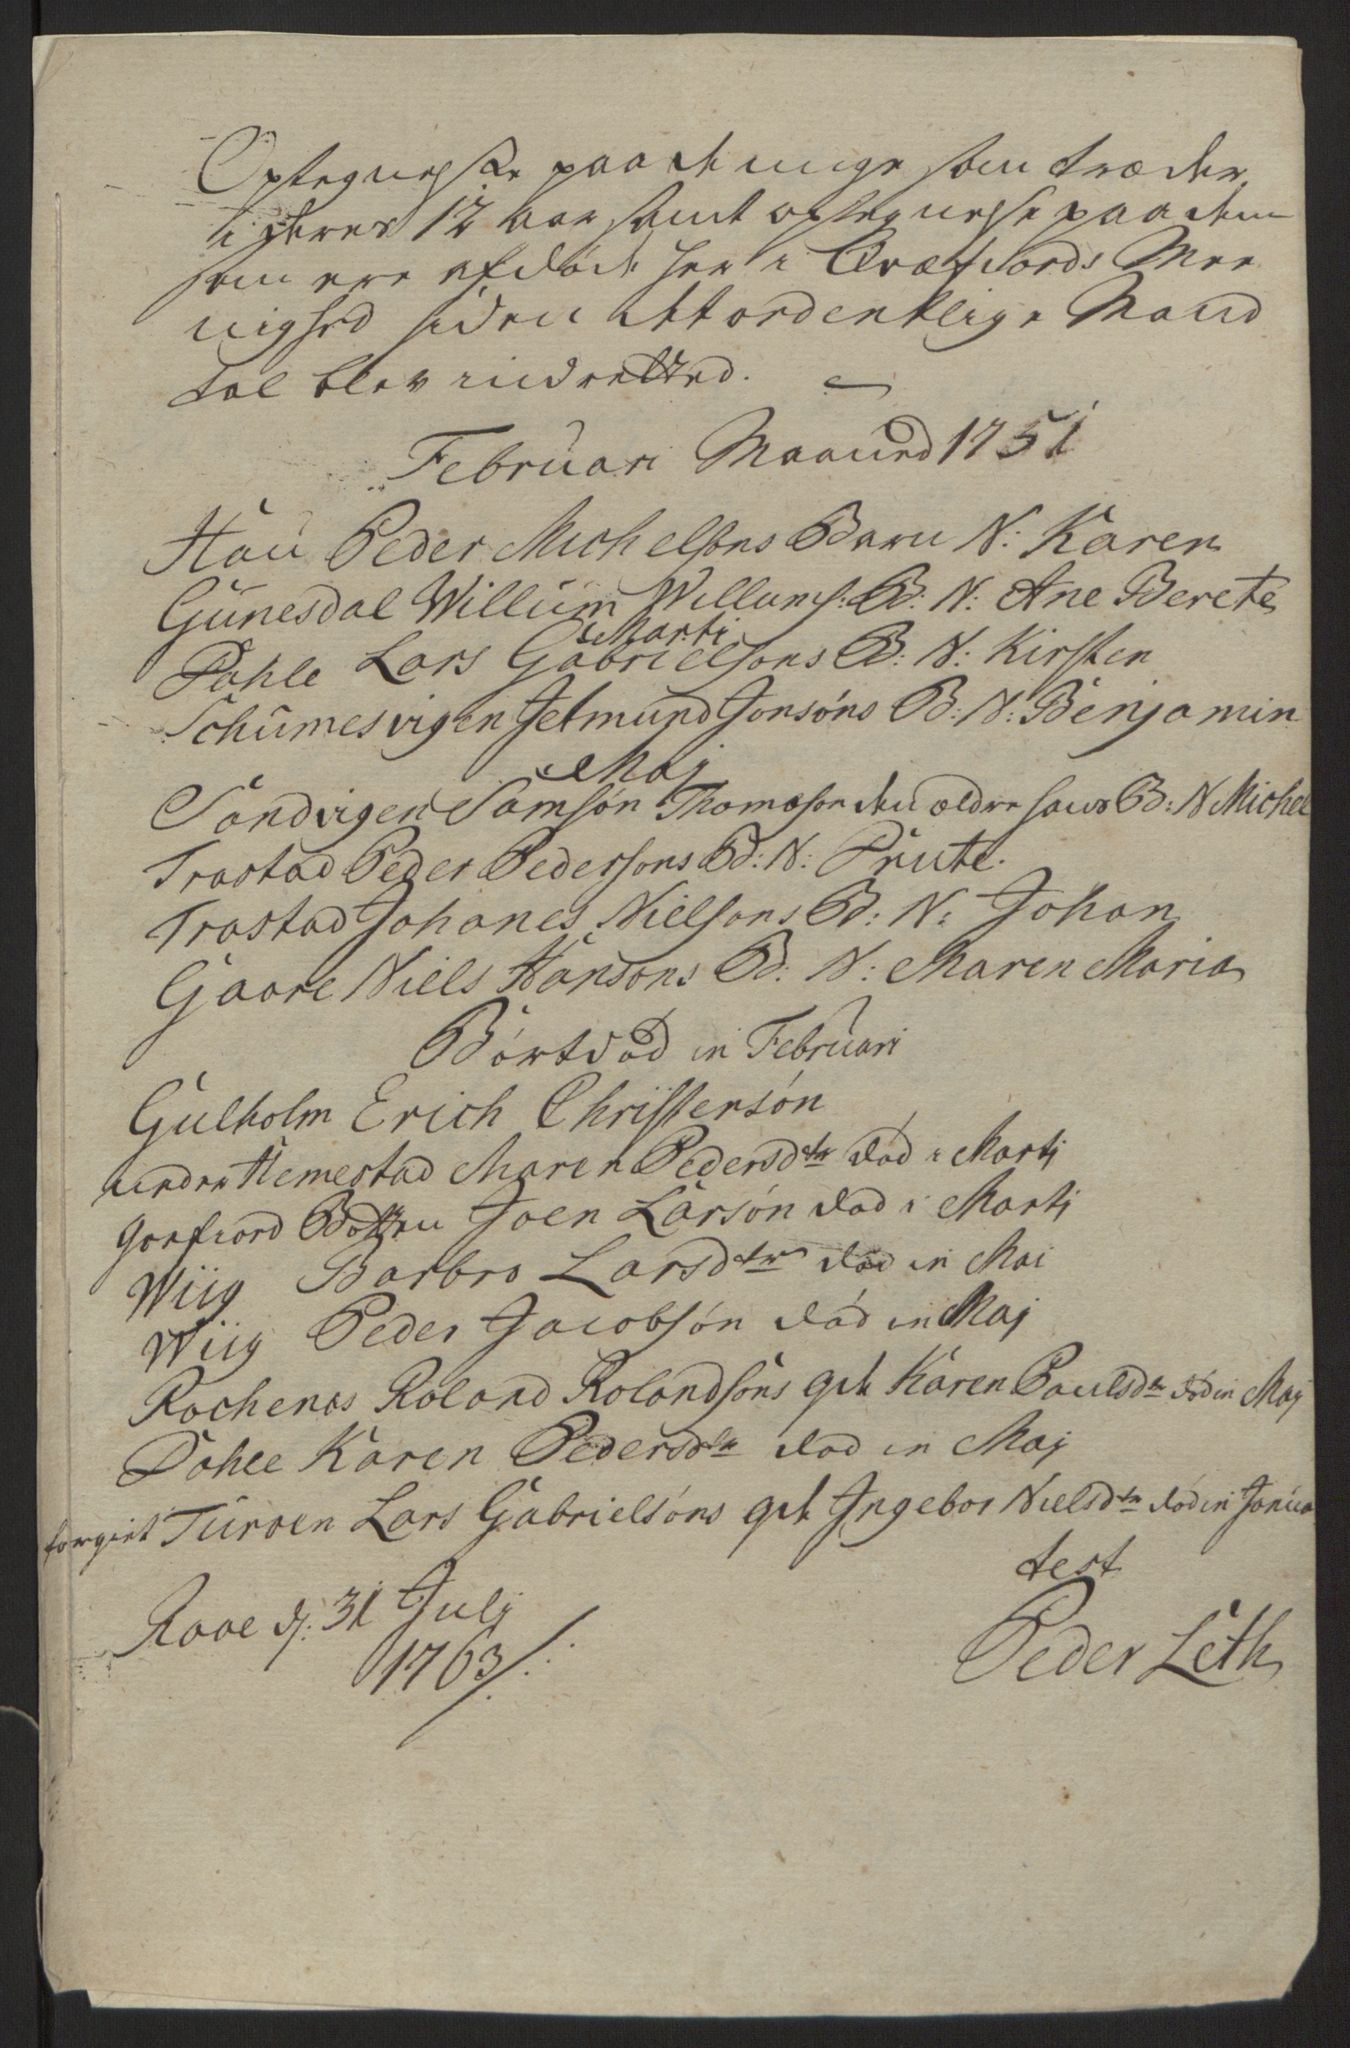 Optegnelse paa de unge som træder
i deres 12 aar samt optegnelse paa dem
som ere afdøde her i Qvæfiords Mee
nighed siden det ordentlige Mand
tal blev indretted.
Februari Maaned 1751
Hau Peder Michelsøns Barn N: Karen
Gunesdal Willum Willums: B: N: Ane Berete
Marti
Dahle Lars Gabrielsøns B: N: Kirsten
Schumesvigen Jetmund Jonsøns B: N: Benjamin
Maj
Sandvigen Samsøn Thomæsøn den ældre hans B: N Michel
Trastad Peder Pedersøns B: N: Prute.
Trastad Johanes Nielsøns B: N: Johan
Gaare Niels Hansøns B: N: Maren Maria
Bortdød in Februari
Gulholm Erich Christensøn
nedre Hemestad Maren Pedersdtr død i Martj
Goefiord Botten Joen Larsøn død i Martj
Wiig Barbro Larsdtr død in Mai
Wiig Peder Jacobsøn død in Maj
Rochenes Roland Rolandsøns qde Karen Paulsdtr død in Maj
Dahle Karen Pedersdtr død in Maj
forgiet Turoen Lars Gabrielsøns qde Ingebor Nielsdtr død in Janua
test
Raae d: 31 Julj
1763
Peder Leth